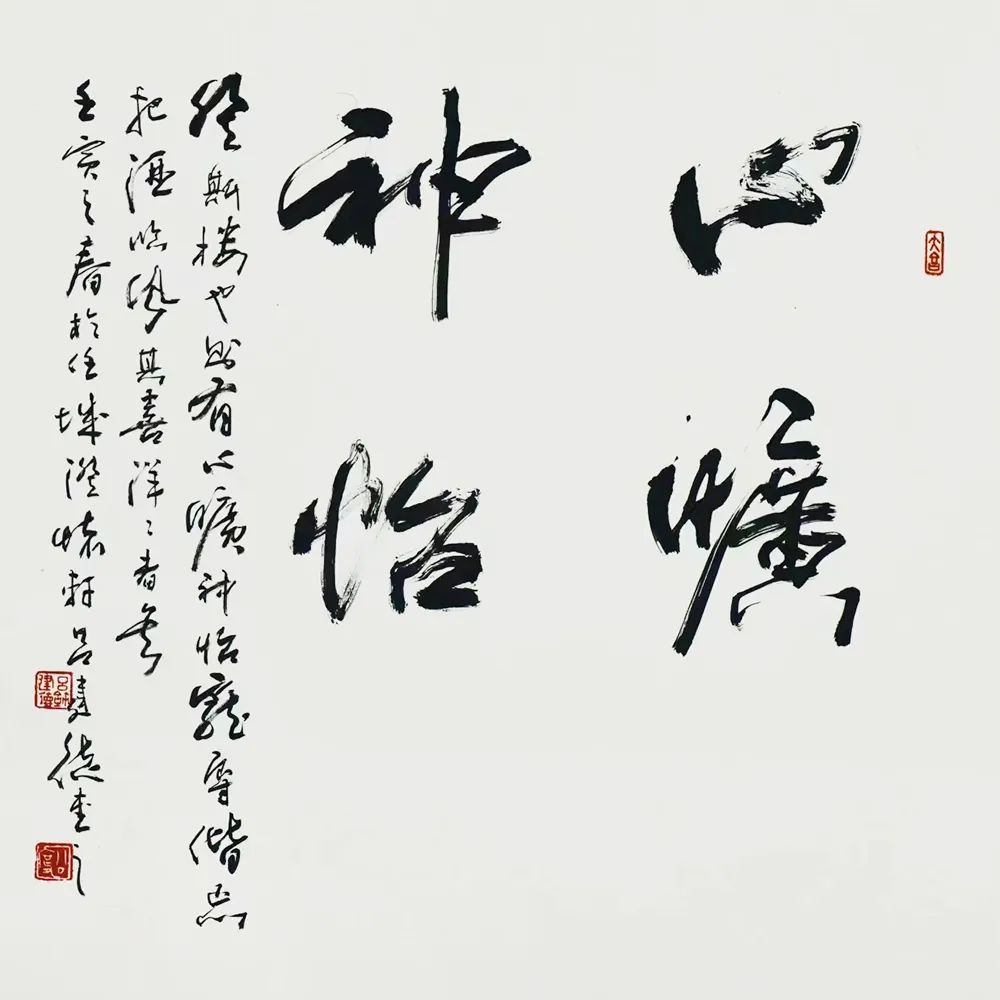 心曠
神怡
登斯樓也則有心曠神怡寵辱偕忘
把酒臨風其喜洋〻者矣
壬寅之春於任城澄懷軒呂建德書之